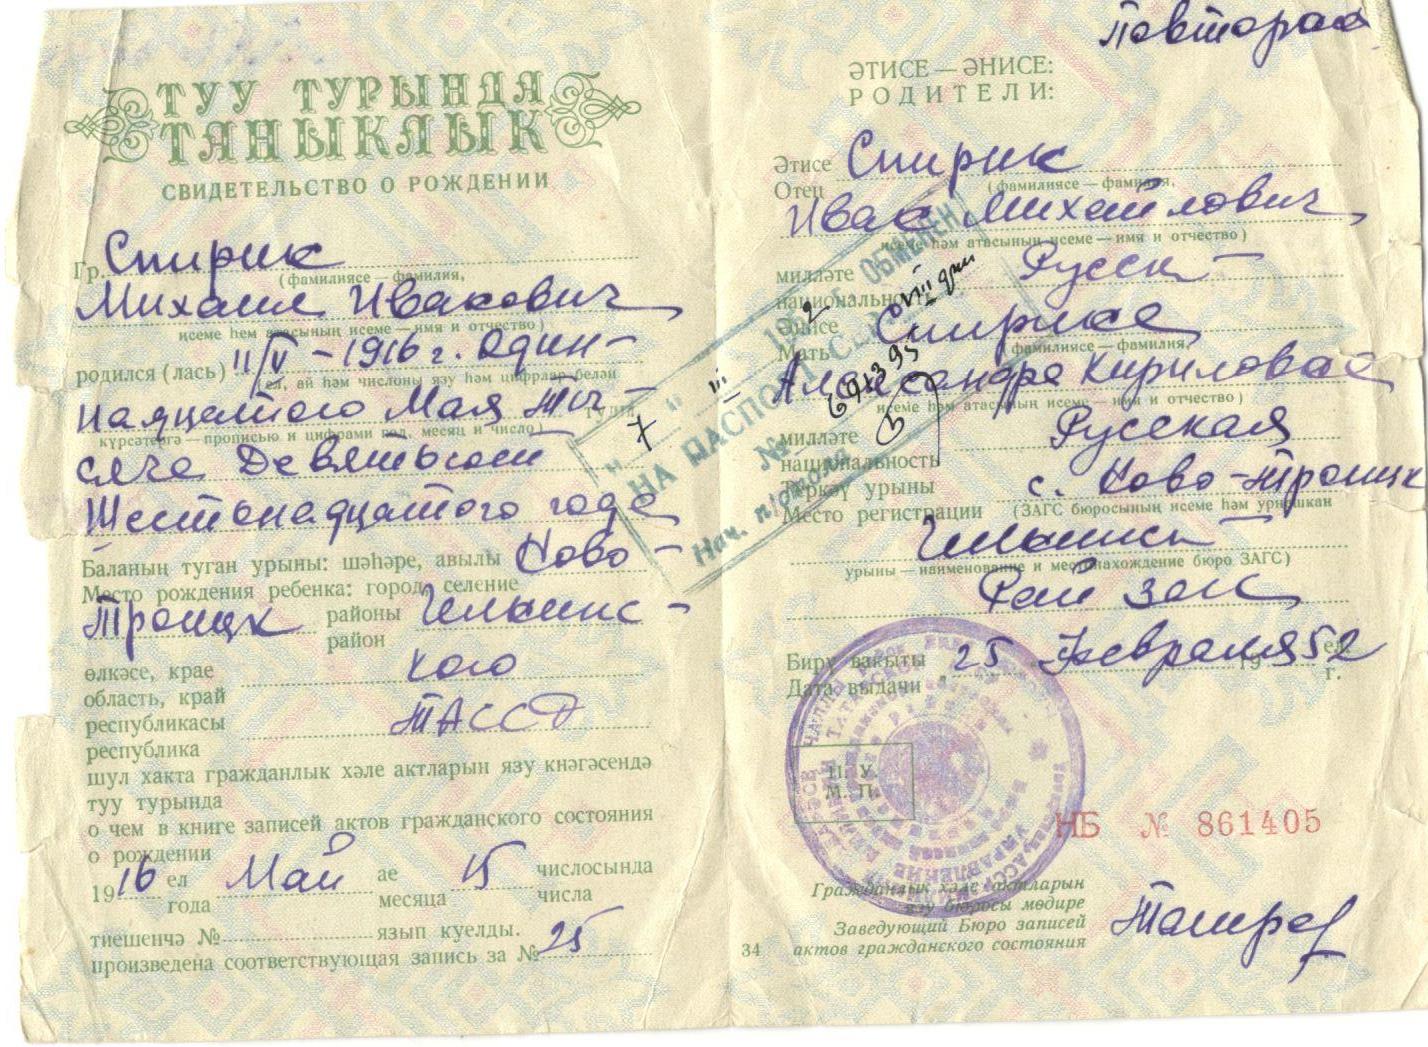 ТУУ ТУРЫНДА
ТАНЫКЛЫК
СВИДЕТЕЛЬСТВО О РОЖДЕНИИ
Гр. Спирин
(фамилиясе — фамилия,
Михаил Иванович
исеме һем атасының исеме — имя и отчество)
родился (лась) 11/V – 1916 г. один-
(ел, ай һәм числоны язу һәм цифрлар белән
надцатого Мая Ты-
күрсәтергә — прописью и цифрами год, месяц и число)
сяча Девятьсот
Шестонадцатого года
Баланың туган урыны: шәһәре, авылы Ново-
Место рождения ребенка: город, селение
Троицк районы Челнинс-
район
өлкәсе, крае кого
область, край
республикасы ТАССР
республика
шул хакта гражданлык хәле актларын язу кнәгәсендә
туу турында
о чем в книге записей актов гражданского состояния
о рождении
1916 ел Май ае 15 числосында
года месяца числа
тиешенчә № язып куелды.
произведена соответствующая запись за № 25
Повторное
ӘТИСЕ — ӘНИСЕ:
РОДИТЕЛИ:
Әтисе Спирин
Отец (фамилиясе — фамилия,
Иван Михайлович
исеме һәм атасының исеме — имя и отчество)
милләте Русск
национальность
Әнисе Спирина
Мать (фамилиясе — фамилия,
Александра Кириловна
исеме һәм атасының исеме — имя и отчество)
милләте Русская
национальность
Теркәү урыны с. Ново-Троицк
Место регистрации (ЗАГС бюросының исеме һәм урнашкан
Челнинск
урыны — наименование и местонахождение бюро ЗАГС)
Рай загс
Бирү вакыты 25 Февраля 1952 ел.
Дата выдачи г.
ОБМЕНЕН
НА ПАСПОРТ
№
Нач. п/стола
П. У.
М. П.
НБ № 861405
Гражданлык хәле актларын
язу бюросы мөдире
Заведующий Бюро записей
актов гражданского состояния
34